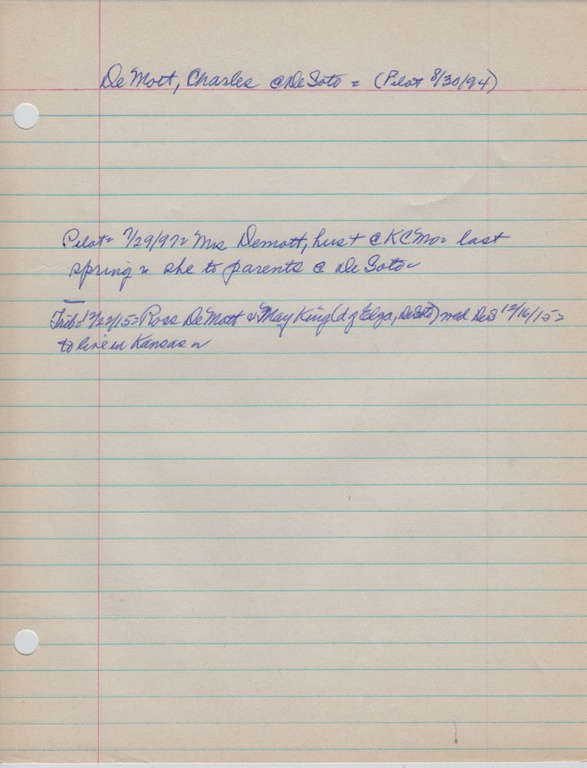 DeMott, Charles @ DeSoto = (Pilot 8/30/94)
Pilot= 7/29/97= Mrs Demott, hus + @ KCMo= last
spring = she to parents @ DeSoto=
Trib: 12/22/15= Ross DeMott & May King (d of Elza, DeSoto) med DeS 12/16/15=
to live in Kansas =